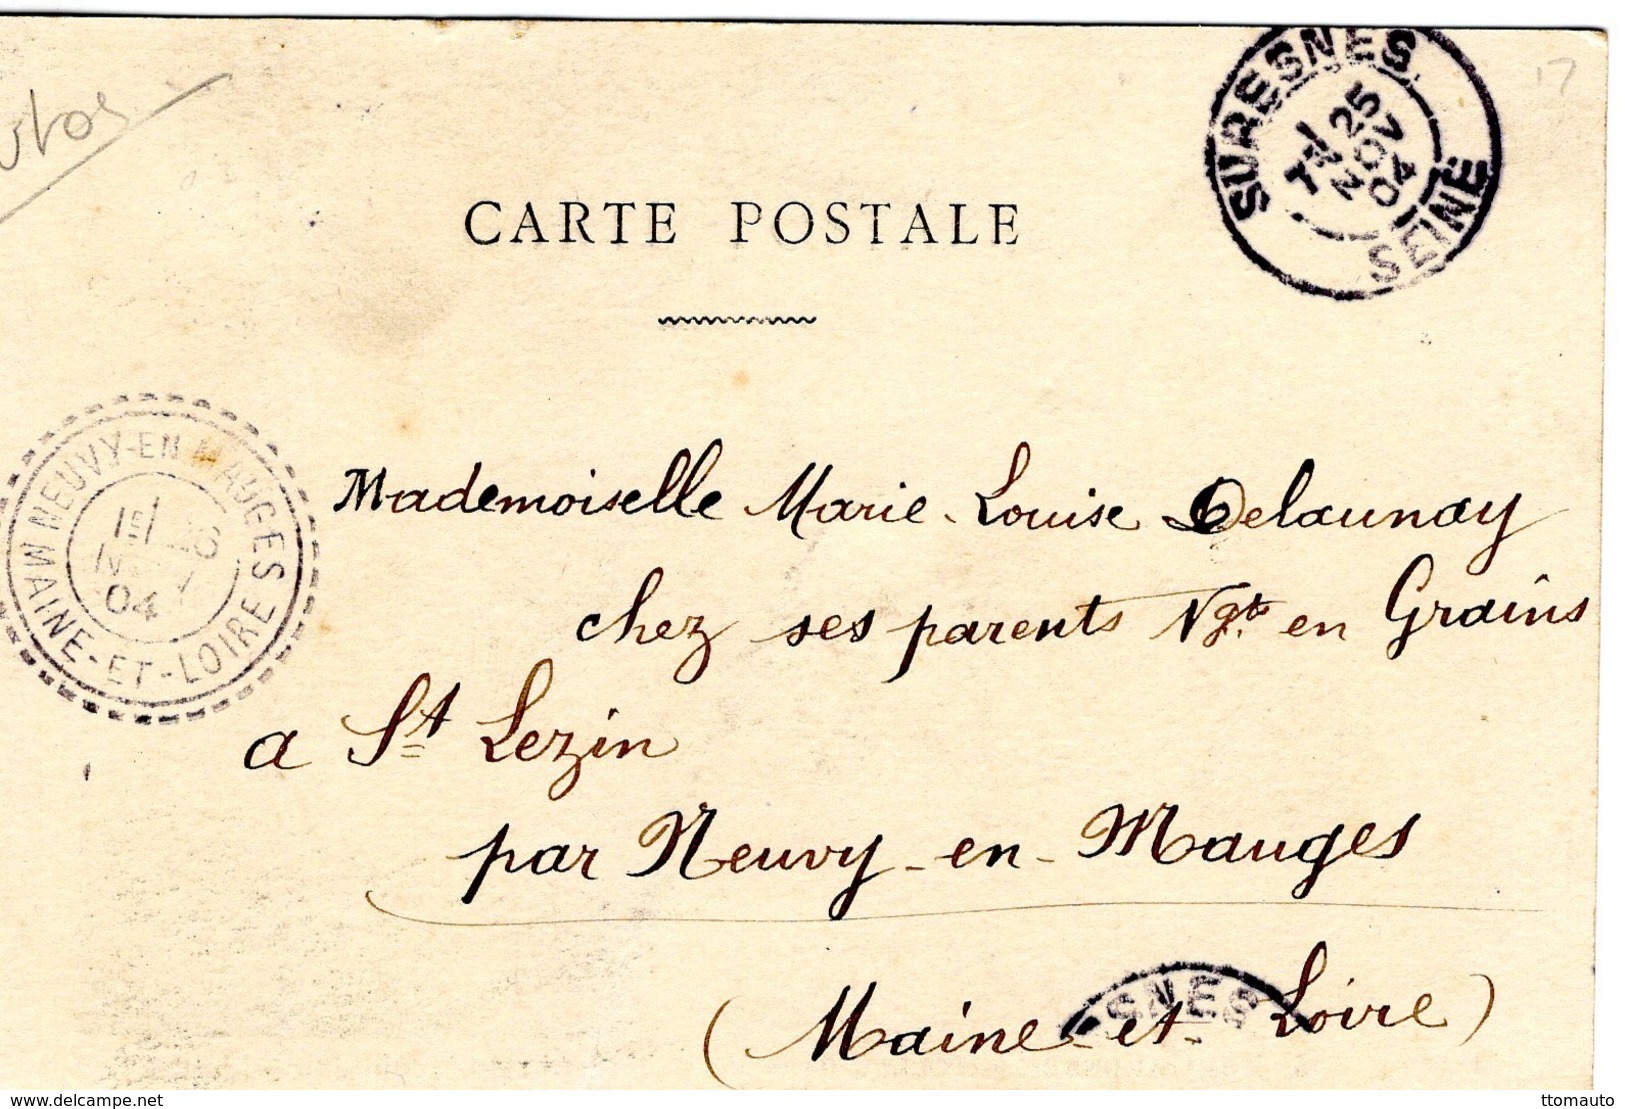 17
SURESNES
25
NOV
04
SEINE
CARTE POSTALE
NEUVY-EN MAUGES
04
MAINE-ET-LOIRE
Mademoiselle Marie-Louise Delaunay
chez ses parents Ngts en Grains
a St Lezin
par Neuvy-en-Mauges
(Maine-et-Loire)
SNES
www.delcampe.net
ttomauto